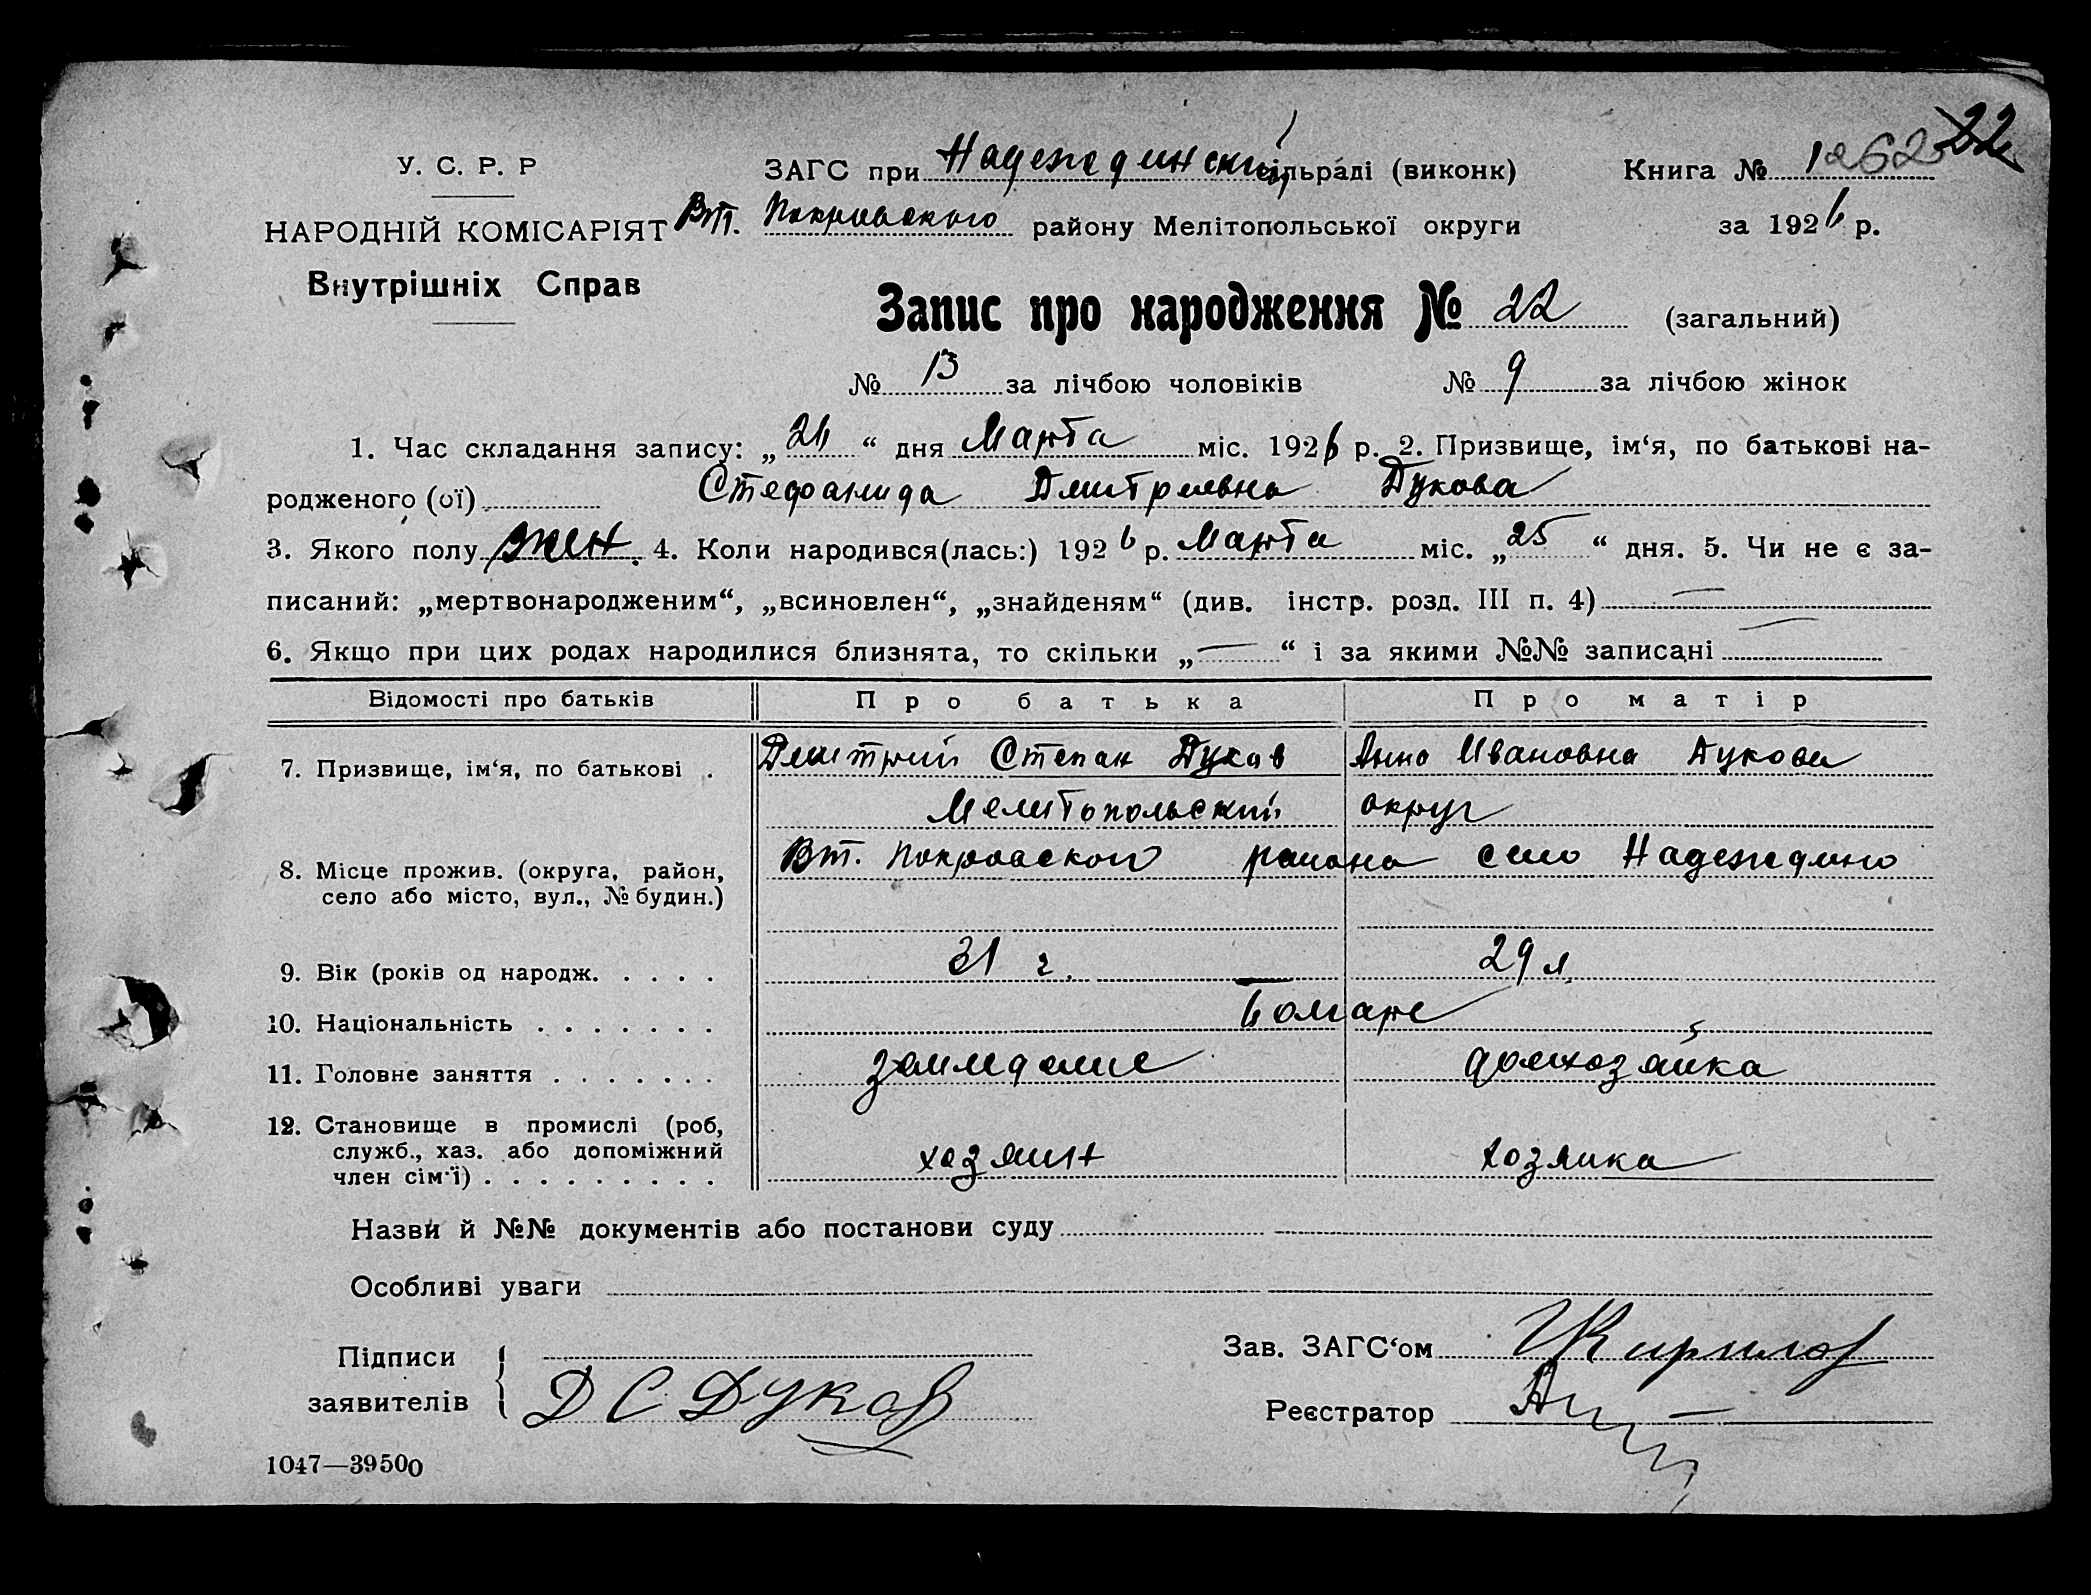 22
У. С. Р. Р
ЗАГС при Надеждинский сільраді (виконк)
Книга № 1 262
НАРОДНІЙ КОМІСАРІЯТ
Вт. Покровского району Мелітопольської округи
за 1926 р.
Внутрішніх Справ
Запис про народження № 22 (загальний)
№ 13 за лічбою чоловіків № 9 за лічбою жінок
1. Час складання запису: „26“ дня Марта міс. 1926 р. 2. Призвище, ім‘я, по батькові на-
родженого (ої) Стефанида Дмитриевна Дукова
3. Якого полу жен. 4. Коли народився(лась:) 1926 р. Марта міс. „25“ дня. 5. Чи не є за-
писаний: „мертвонародженим“, „всиновлен“, „знайденям“ (див. інстр. розд. III п. 4) —
6. Якщо при цих родах народилися близнята, то скільки „—“ і за якими №№ записані —
Відомості про батьків Про батька Про матір
7. Призвище, ім‘я, по батькові . Дмитрий Степан Дуков Анна Ивановна Дукова
Мелитопольский округ
8. Місце прожив. (округа, район, Вт. Покровской района село Надеждино
село або місто, вул., № будин.)
9. Вік (років од народж. . . . . 31 г. 29 л.
10. Національність . . . . . . . Болгаре
11. Головне заняття . . . . . . . земледелие домхозяйка
12. Становище в промислі (роб,
служб., хаз. або допоміжний хозяин хозяика
член сім‘ї) . . . . . . . . .
Назви й №№ документів або постанови суду
Особливі уваги
Підписи
заявителів
Д С Дуков
Зав. ЗАГС‘ом Кирилов
Реєстратор
1047—39500